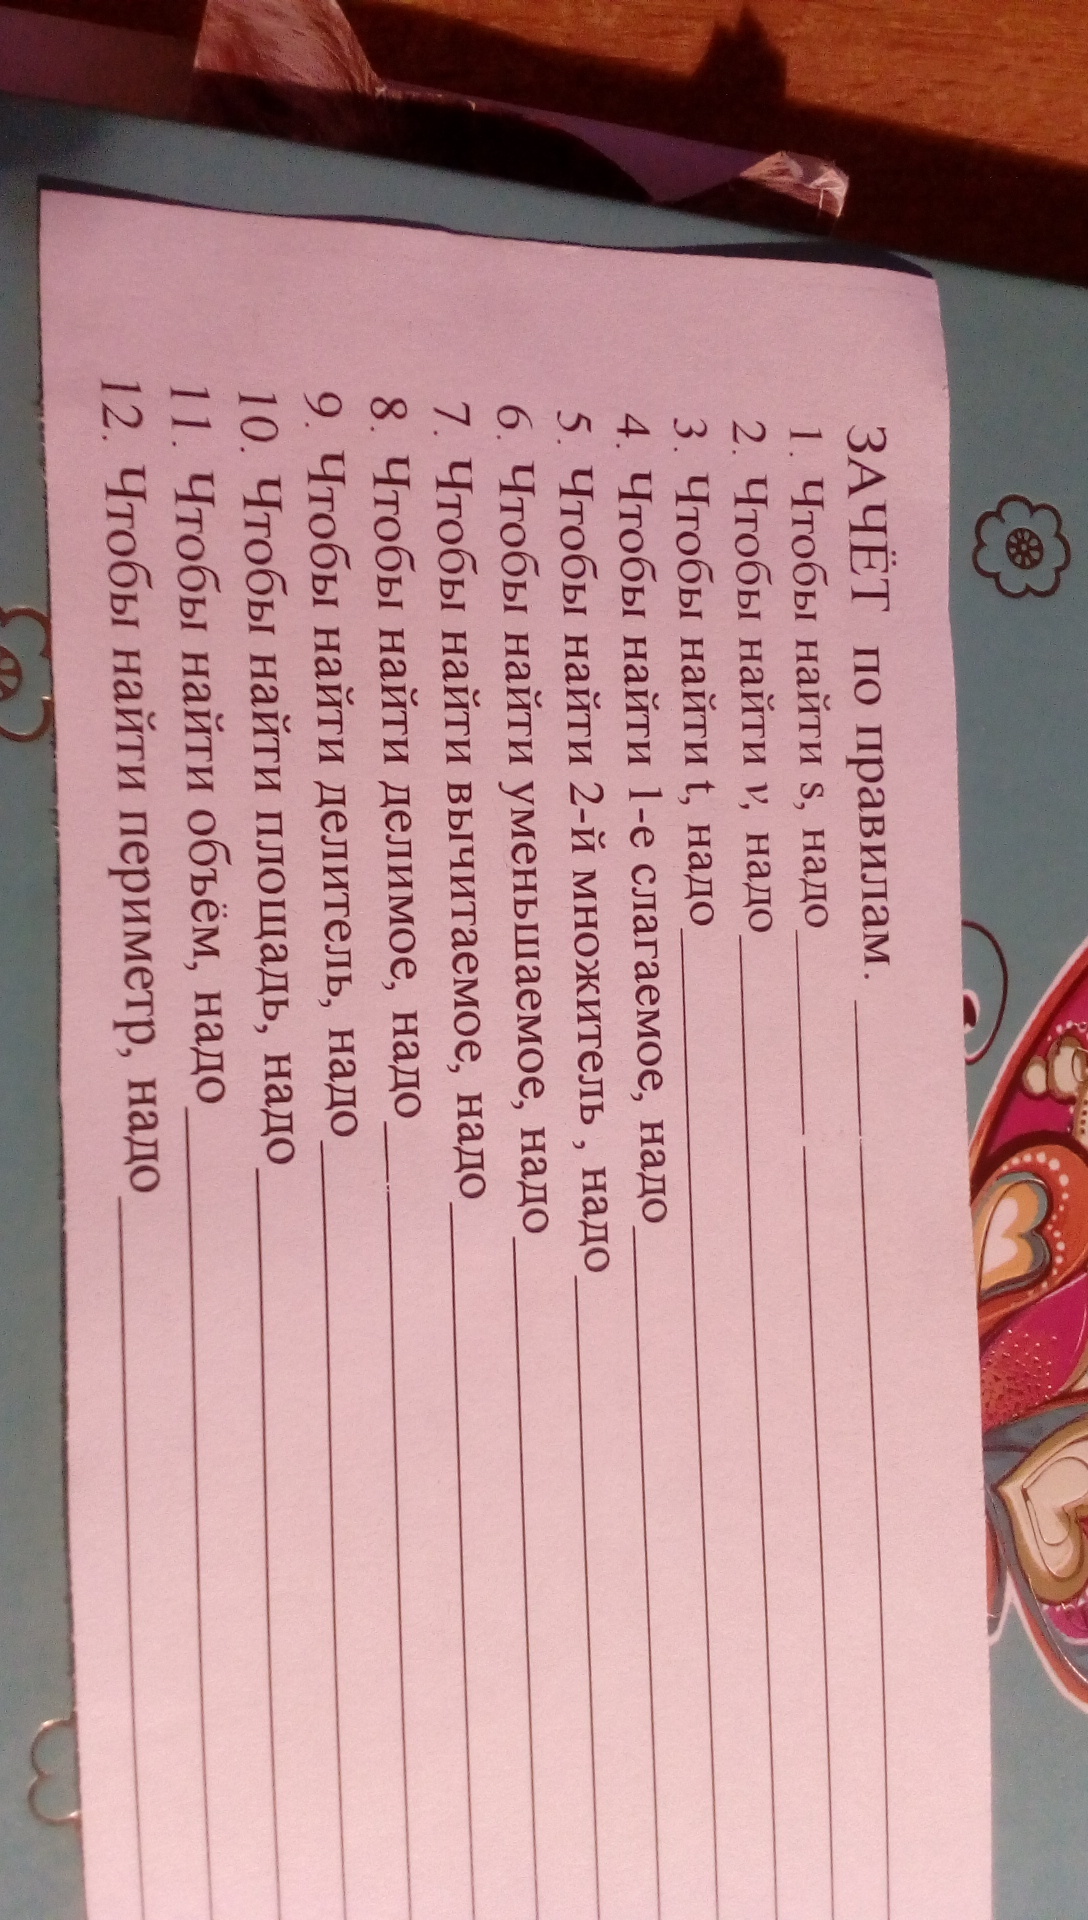 ЗАЧЁТ по правилам. ____________
1. Чтобы найти s, надо____________
2. Чтобы найти v, надо____________
3. Чтобы найти t, надо____________
4. Чтобы найти 1-е слагаемое, надо____________
5. Чтобы найти 2-й множитель , надо____________
6. Чтобы найти уменьшаемое, надо____________
7. Чтобы найти вычитаемое, надо____________
8. Чтобы найти делимое, надо____________
9. Чтобы найти делитель, надо____________
10. Чтобы найти площадь, надо____________
11. Чтобы найти объём, надо____________
12. Чтобы найти периметр, надо____________